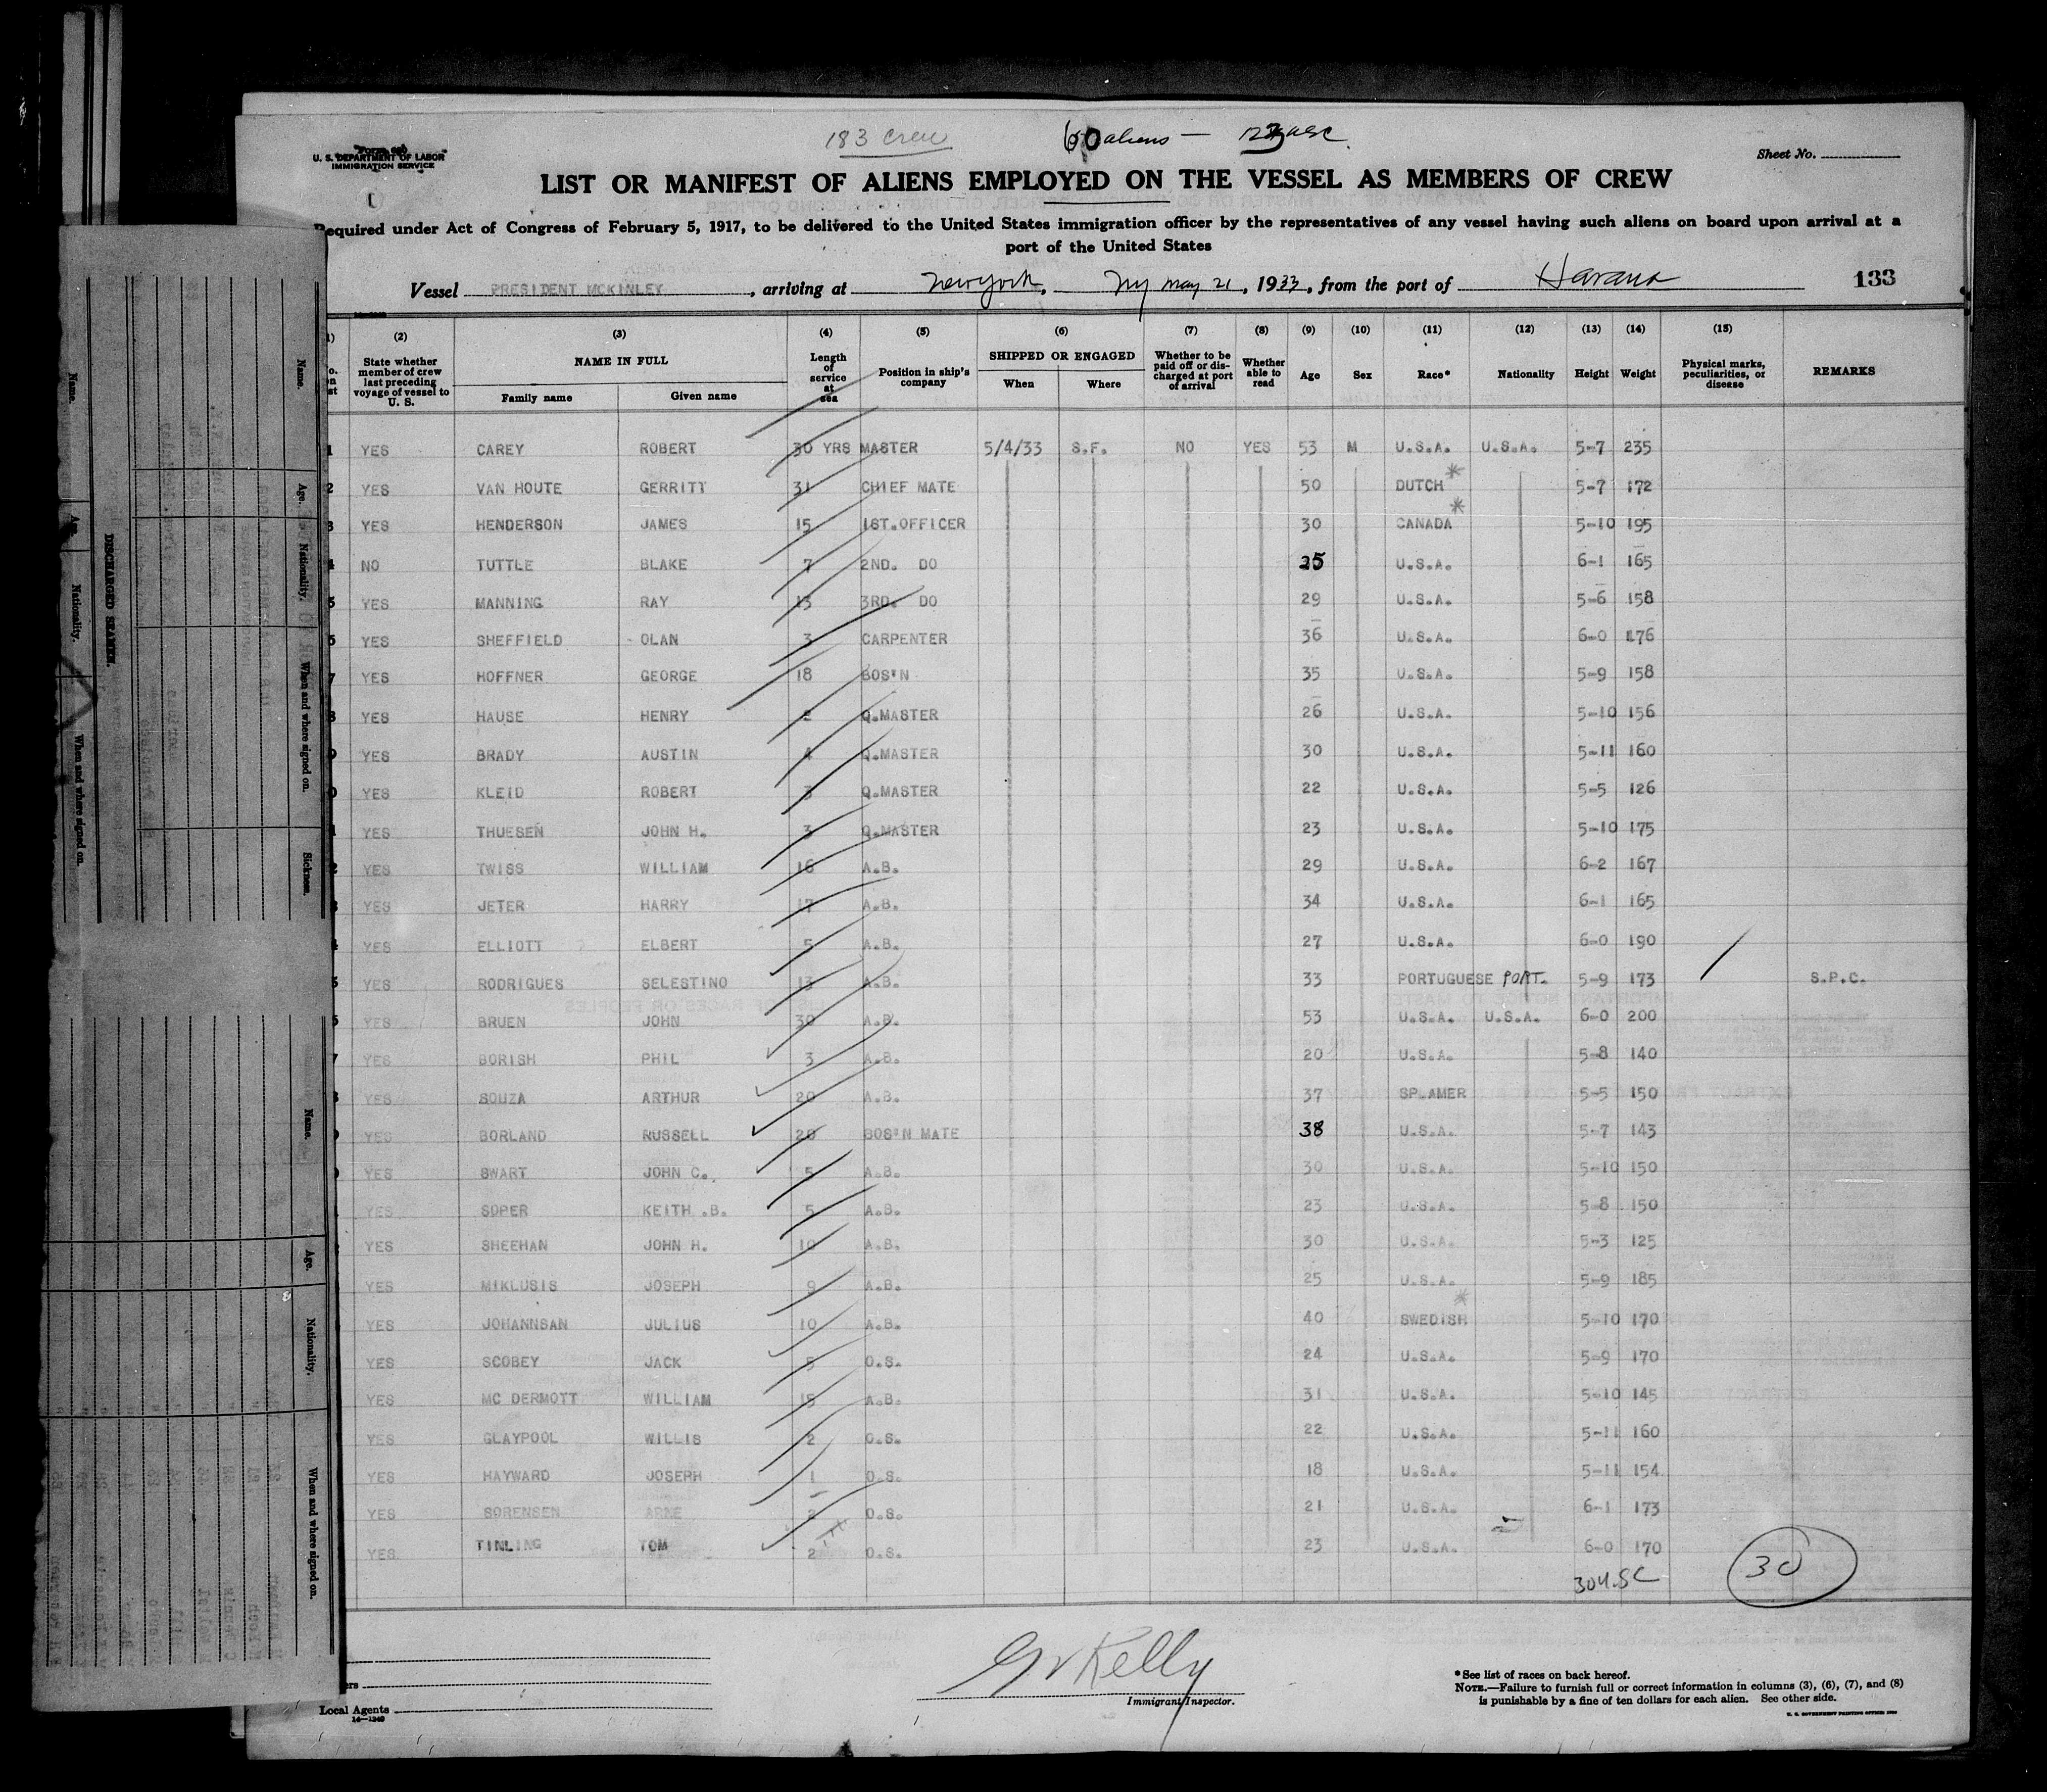 183 crew 60 aliens — 123 usc
Form 680
U. S. DEPARTMENT OF LABOR
IMMIGRATION SERVICE
Sheet No.
LIST OR MANIFEST OF ALIENS EMPLOYED ON THE VESSEL AS MEMBERS OF CREW
Required under Act of Congress of February 5, 1917, to be delivered to the United States immigration officer by the representatives of any vessel having such aliens on board upon arrival at a
port of the United States
Vessel PRESIDENT MCKINLEY, arriving at New York, NY May 21, 1933, from the port of Havana 133
(2) (3) (4) (5) (6) (7) (8) (9) (10) (11) (12) (13) (14) (15)
State whether member of crew last preceding voyage of vessel to U. S. NAME IN FULL Family name Given name Length of service at sea Position in ship's company SHIPPED OR ENGAGED When Where Whether to be paid off or discharged at port of arrival Whether able to read Age Sex Race* Nationality Height Weight Physical marks, peculiarities, or disease REMARKS
1 YES CAREY ROBERT 30 YRS MASTER 5/4/33 S.F. NO YES 53 M U.S.A. U.S.A. 5-7 235
2 YES VAN HOUTE GERRITT 31 CHIEF MATE 50 DUTCH * 5-7 172
3 YES HENDERSON JAMES 15 1ST.OFFICER 30 CANADA * 5-10 195
4 NO TUTTLE BLAKE 7 2ND. DO 25 U.S.A. 6-1 165
5 YES MANNING RAY 13 3RD. DO 29 U.S.A. 5-6 158
6 YES SHEFFIELD OLAN 3 CARPENTER 36 U.S.A. 6-0 176
7 YES HOFFNER GEORGE 18 BOS'N 35 U.S.A. 5-9 158
8 YES HAUSE HENRY 2 Q.MASTER 26 U.S.A. 5-10 156
9 YES BRADY AUSTIN 4 Q.MASTER 30 U.S.A. 5-11 160
0 YES KLEID ROBERT 3 Q.MASTER 22 U.S.A. 5-5 126
1 YES THUESEN JOHN H. 3 Q.MASTER 23 U.S.A. 5-10 175
2 YES TWISS WILLIAM 16 A.B. 29 U.S.A. 6-2 167
3 YES JETER HARRY 17 A.B. 34 U.S.A. 6-1 165
4 YES ELLIOTT ELBERT 5 A.B. 27 U.S.A. 6-0 190
5 YES RODRIGUES SELESTINO 13 A.B. 33 PORTUGUESE PORT. 5-9 173 S.P.C.
6 YES BRUEN JOHN 30 A.B. 53 U.S.A. U.S.A. 6-0 200
7 YES BORISH PHIL 3 A.B. 20 U.S.A. 5-8 140
8 YES SOUZA ARTHUR 20 A.B. 37 SP.AMER 5-5 150
9 YES BORLAND RUSSELL 20 BOS'N MATE 38 U.S.A. 5-7 143
0 YES SWART JOHN C. 5 A.B. 30 U.S.A. 5-10 150
YES SOPER KEITH .B. 5 A.B. 23 U.S.A. 5-8 150
YES SHEEHAN JOHN H. 10 A.B. 30 U.S.A. 5-3 125
YES MIKLUSIS JOSEPH 9 A.B. 25 U.S.A. 5-9 185
YES JOHANNSAN JULIUS 10 A.B. 40 SWEDISH * 5-10 170
YES SCOBEY JACK 5 O.S. 24 U.S.A. 5-9 170
YES MC DERMOTT WILLIAM 15 A.B. 31 U.S.A. 5-10 145
YES GLAYPOOL WILLIS 2 O.S. 22 U.S.A. 5-11 160
YES HAYWARD JOSEPH 1 O.S. 18 U.S.A. 5-11 154
YES SORENSEN ARNE 2 O.S. 21 U.S.A. 6-1 173
YES TINLING TOM 2 O.S. 23 U.S.A. 6-0 170
30 U.SC 30
GW Kelly
Immigrant Inspector.
Local Agents
14—1240
*See list of races on back hereof.
NOTE.—Failure to furnish full or correct information in columns (3), (6), (7), and (8)
is punishable by a fine of ten dollars for each alien. See other side.
Name. Age. Nationality. When and where signed on.
DISCHARGED SEAMEN.
Name. Age. Nationality. When and where signed on. Sickness.
Name. Age. Nationality. When and where signed on.